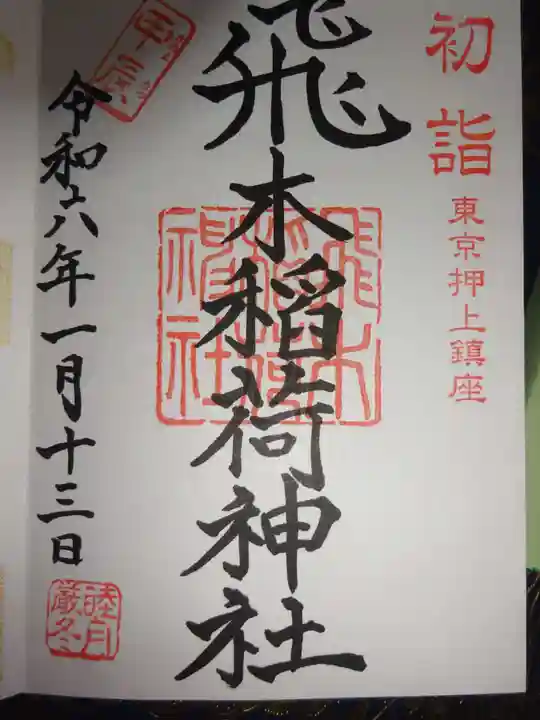 初詣
東京押上鎮座
飛木稲荷神社
飛木稲荷神社
甲辰
令和六年一月十三日
睦月
厳冬